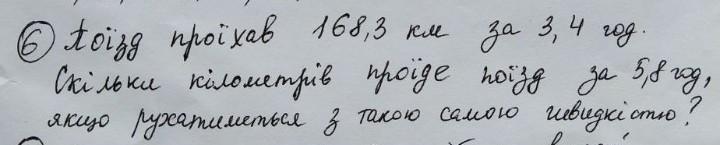 ⑥ Поїзд проїхав 168,3 км за 3,4 год.
Скільки кілометрів проїде поїзд за 5,8 год,
якщо рухатиметься з такою самою швидкістю?